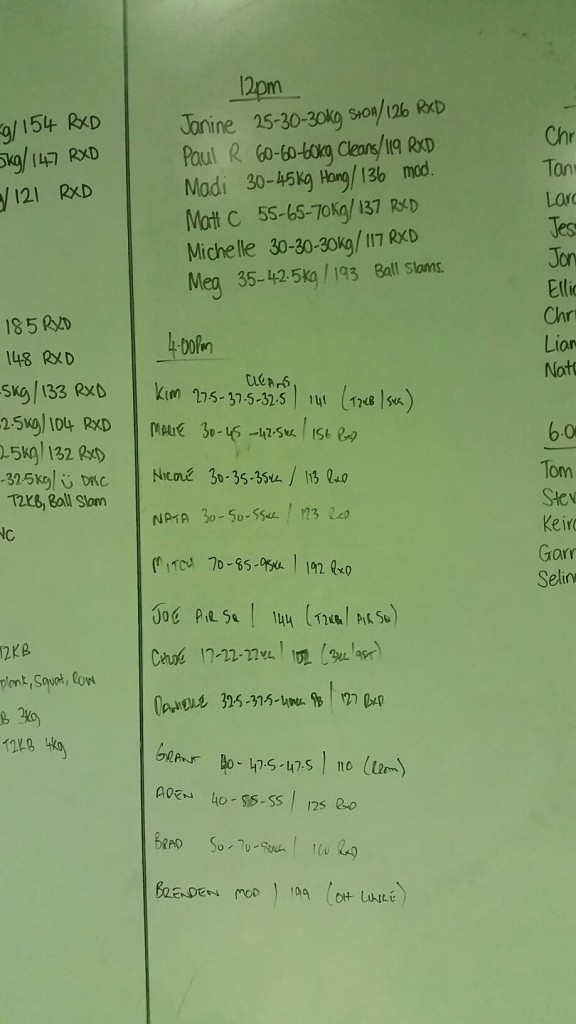 kg/154 RXD
5kg/147 RXD
/121 RXD
185 RXD
148 RXD
5kg/133 RXD
2.5kg/104 RXD
2.5kg/132 RXD
-32.5kg/ DNC
T2KB, Ball Slam
NC
T2KB
plank, Squat, Row
B 3kg
T2KB 4kg
12pm
Janine 25-30-30kg StOH/126 RXD
Paul R 60-60-60kg Cleans/119 RXD
Madi 30-45kg Hang/136 mod.
Matt C 55-65-70kg/137 RXD
Michelle 30-30-30kg/117 RXD
Meg 35-42.5kg/193 Ball Slams.
4.00pm
CLEANS
KIM 27.5-37.5-32.5 | 141 (T2KB/5KG)
30-45-42.5KG / 156 RXD
NICOLE 30-35-35KG / 113 RXD
NATA 30-50-55KG / 123 RXD
MITCH 70-85-95KG | 192 RXD
JOE AIR SQ | 144 (T2KB/AIR SQ)
CHLOE 17-22-22KG | 102 (3KG/9FT)
DANIELLE 32.5-37.5- | 127 RXD
GRANT 40-47.5-47.5 | 110
ADEN 40-55-55 / 125 RXD
BRAD 50-70- | RXD
BRENDEN MOD | 199 (OH LUNGE)
Chr
Tan
Lar
Jes
Jon
Elli
Chr
Lian
Nat
6.0
Tom
Stev
Keir
Garr
Selin